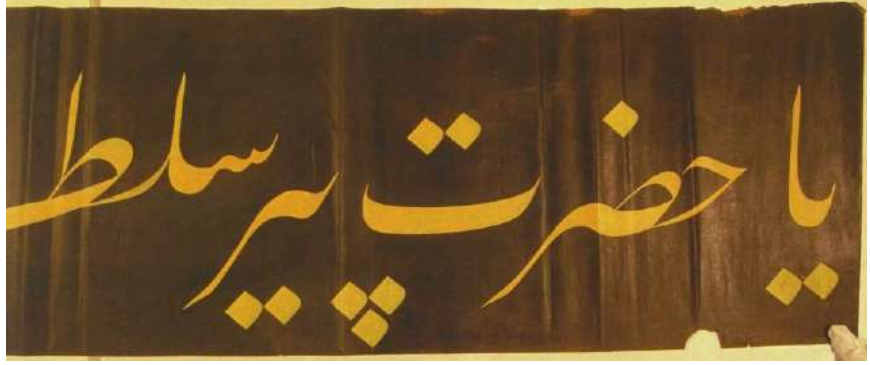 يا حضرت پير سلط